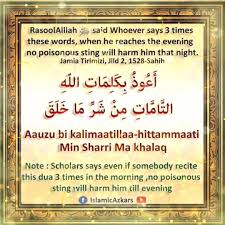 RasoolAlliah ﷺ said Whoever says 3 times
these words, when he reaches the evening
no poisonous sting will harm him that night.
Jamia Tirimizi, Jild 2, 1528-Sahih
أَعُوذُ بِكَلِمَاتِ اللَّهِ
التَّامَّاتِ مِنْ شَرِّ مَا خَلَقَ
Aauzu bi kalimaatillaa-hittammaati
Min Sharri Ma khalaq
Note : Scholars says even if somebody recite
this dua 3 times in the morning ,no poisonous
sting will harm him till evening
IslamicAzkars